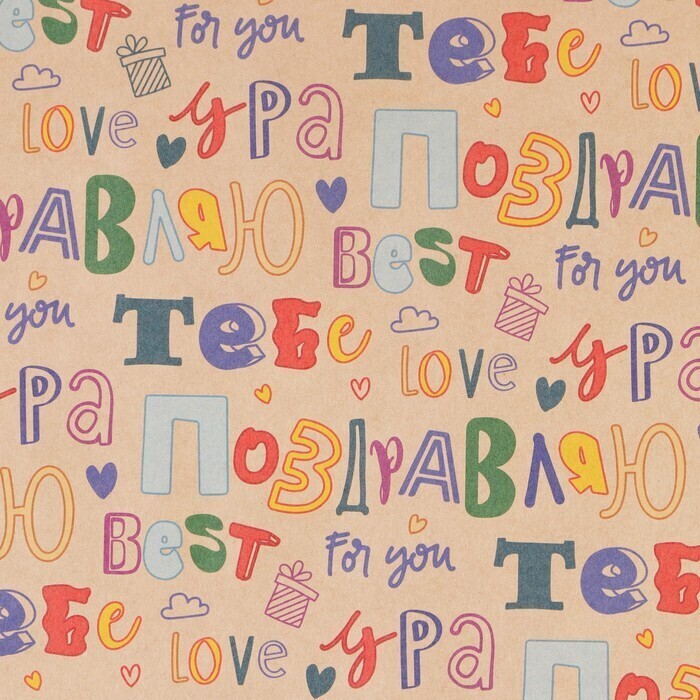 Best For you Тебе
Love Ура Поздра Lov
равляю Best For you
you Тебе Love Ура
ра Поздравляю
ю Best For you Тебе
ебе Love Ура П